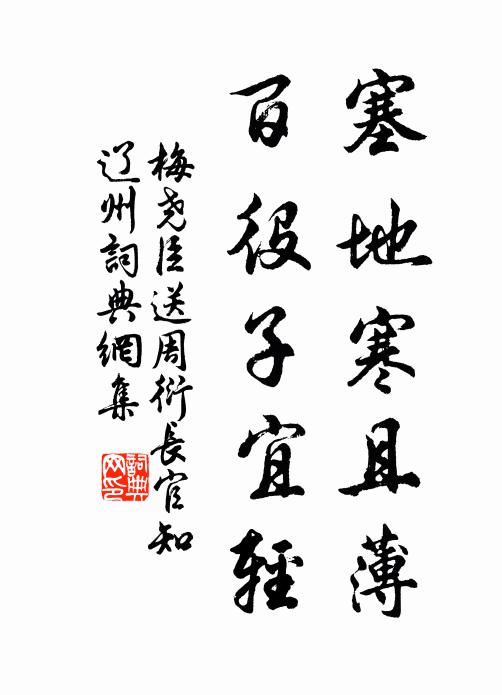 塞地寒且薄
百役子宜輕
梅尧臣送周衍長官知
辽州詞典網集
詞典网印